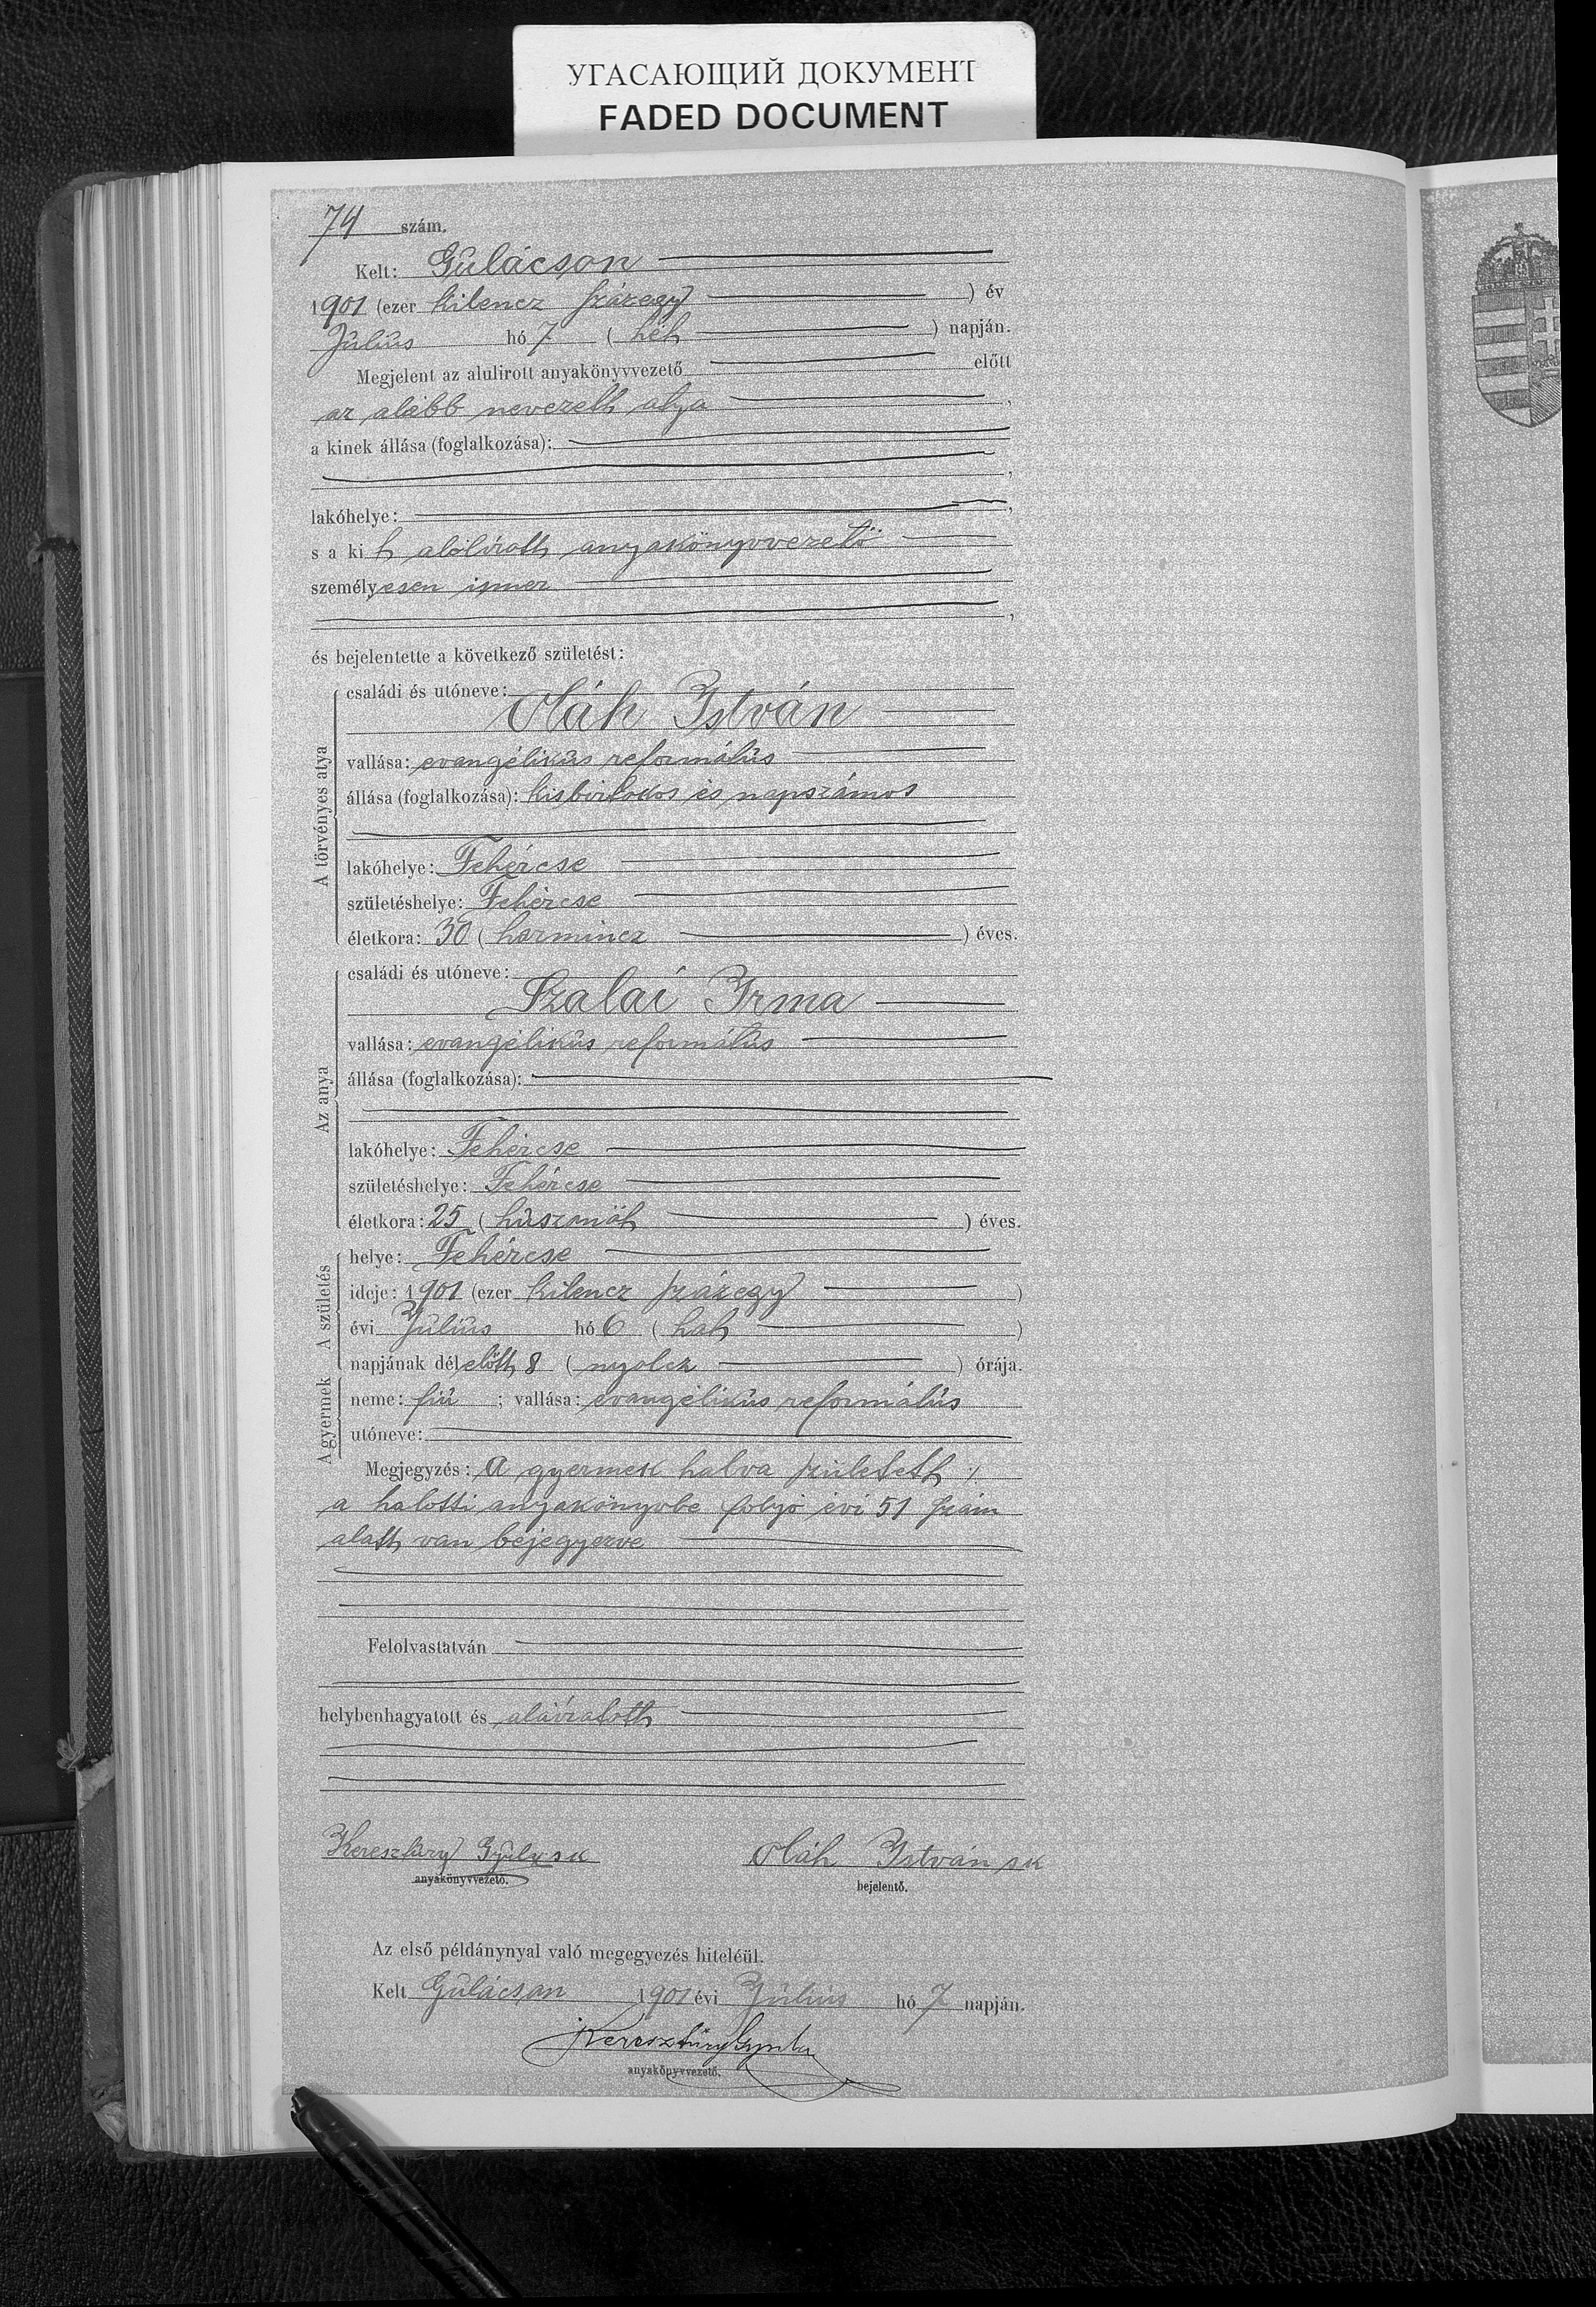 УГАСАЮЩИЙ ДОКУМЕНТ
FADED DOCUMENT
74 szám.
Kelt: Gulácson
1901 (ezer kilencz százegy) év
Július hó 7 (hét) napján.
Megjelent az alulirott anyakönyvvezető előtt
az alább nevezett atya,
a kinek állása (foglalkozása):
,
lakóhelye: ,
s a kit alólírott anyakönyvvezető
személyesen ismer
,
és bejelentette a következő születést:
A törvényes atya
családi és utóneve:
Oláh István
vallása: evangélikús református
állása (foglalkozása): kisbirtokos és napszámos
lakóhelye: Fehércse
születéshelye: Fehércse
életkora: 30 (harmincz) éves.
Az anya
családi és utóneve:
Szalai Irma
vallása: evangélikús református
állása (foglalkozása):
lakóhelye: Fehércse
születéshelye: Fehércse
életkora: 25 (húszonöt) éves.
A születés
helye: Fehércse
ideje: 1901 (ezer kilencz százegy)
évi Július hó 6 (hat)
napjának délelőtt 8 (nyolcz) órája.
A gyermek
neme: fiú; vallása: evangélikús református
utóneve:
Megjegyzés: A gyermek halva született;
a halotti anyakönyvbe folyó évi 51 szám
alatt van bejegyezve
Felolvastatván
helybenhagyatott és aláíratott
Keresztúry Gyula sk
anyakönyvvezető.
Oláh István sk
bejelentő.
Az első példánynyal való megegyezés hiteléül.
Kelt Gulácson 1901 évi Július hó 7 napján.
Keresztúry Gyula
anyakönyvvezető.